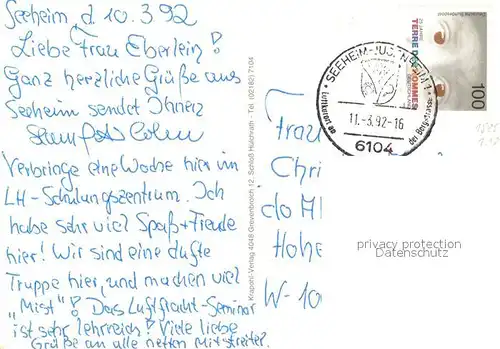 Seeheim, d. 10.3.92
Liebe Frau Eberlein!
Ganz herzliche Grüße aus
Seeheim sendet Ihnen
Verbringe eine Woche hier im
LH-Schulungszentrum. Ich
habe sehr viel Spaß + Freude
hier! Wir sind eine dufte
Truppe hier, und machen viel
"Mist"! Das Luftfracht-Seminar
ist sehr lehrreich! Viele liebe
Grüße an alle netten Mitstreiter.
Krapohl-Verlag 4048 Grevenbroich 12, Schloß Hülchrath - Tel. (02182) 7104
SEEHEIM-JUGENHEIM 1
Luftkurort an der Bergstrasse
11.-3.92-16
6104
Deutsche Bundespost
25 Jahre
TERRE DES HOMMES
100
Frau
Chri
do Al
Hohe
W-10
privacy protection
Datenschutz